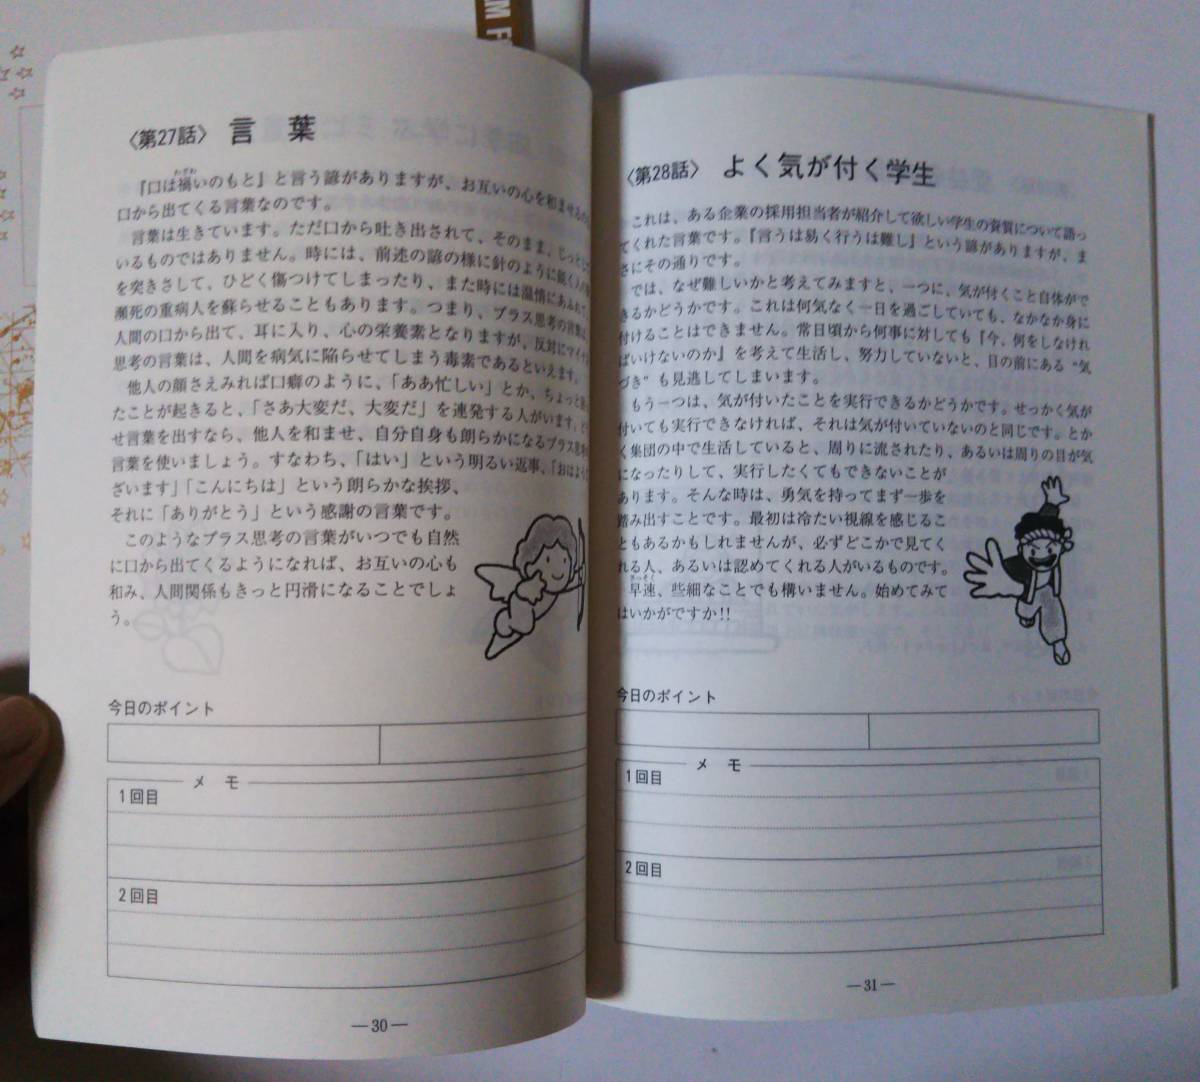 M F
〈第27話〉 言 葉
『口は禍いのもと』と言う諺がありますが、お互いの心を和ませるの
わざわ
口から出てくる言葉なのです。
言葉は生きています。ただ口から吐き出されて、そのまま、じっとして
いるものではありません。時には、前述の諺の様に針のように鋭く人の
を突きさして、ひどく傷つけてしまったり、また時には温情にあふれて、
瀕死の重病人を蘇らせることもあります。つまり、プラス思考の言葉は、
人間の口から出て、耳に入り、心の栄養素となりますが、反対にマイナ
思考の言葉は、人間を病気に陥らせてしまう毒素であるといえます。
他人の顔さえみれば口癖のように、「ああ忙しい」とか、ちょっと
たことが起きると、「さあ大変だ、大変だ」を連発する人がいます。
せ言葉を出すなら、他人を和ませ、自分自身も朗らかになるプラス思考
言葉を使いましょう。すなわち、「はい」という明るい返事、「おはよう
ざいます」「こんにちは」という朗らかな挨拶、
それに「ありがとう」という感謝の言葉です。
このようなプラス思考の言葉がいつでも自然
に口から出てくるようになれば、お互いの心も
和み、人間関係もきっと円滑になることでしょ
う。
今日のポイント
メ モ
1回目
2回目
—30—
〈第28話〉 よく気が付く学生
これは、ある企業の採用担当者が紹介して欲しい学生の資質について語っ
てくれた言葉です。『言うは易く行うは難し』という諺がありますが、ま
さにその通りです。
では、なぜ難しいかと考えてみますと、一つに、気が付くこと自体がで
きるかどうかです。これは何気なく一日を過ごしていても、なかなか身に
付けることはできません。常日頃から何事に対しても『今、何をしなけれ
ばいけないのか』を考えて生活し、努力していないと、目の前にある“気
づき”も見逃してしまいます。
もう一つは、気が付いたことを実行できるかどうかです。せっかく気が
付いても実行できなければ、それは気が付いていないのと同じです。とか
く集団の中で生活していると、周りに流されたり、あるいは周りの目が気
になったりして、実行したくてもできないことが
あります。そんな時は、勇気を持ってまず一歩を
踏み出すことです。最初は冷たい視線を感じるこ
ともあるかもしれませんが、必ずどこかで見てく
れる人、あるいは認めてくれる人がいるものです。
さっそく
早速、些細なことでも構いません。始めてみて
はいかがですか!!
今日のポイント
メ モ
1回目
2回目
—31—